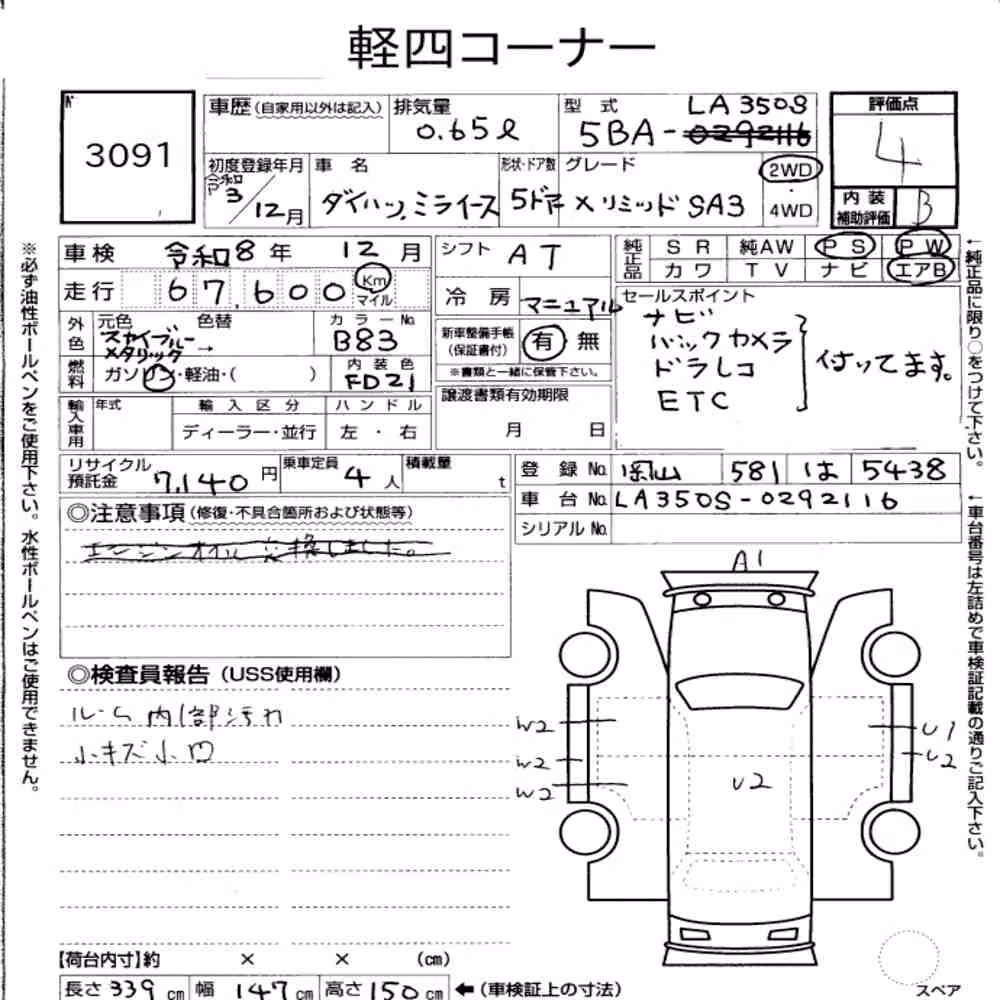 軽四コーナー
№ 3091
車歴(自家用以外は記入) 排気量 0.65ℓ 型式 LA350S 5BA-0292116
評価点 4
初度登録年月 令和3/12月 車名 ダイハツ ミライース 形状・ドア数 5ドア グレード X リミッド SA3 2WD・4WD
内装補助評価 B
車検 令和8年 12月 シフト AT
走行 67,600 Km マイル 冷房 マニュアル
純正品 SR 純AW PS PW
カワ TV ナビ エアB
外色 元色 スカイブルーメタリック → 色替 カラーNo. B83
燃料 ガソリン・軽油・( ) 内装色 FD21
新車整備手帳(保証書付) 有 無
※書類と一緒に保管下さい。
セールスポイント
ナビ
バックカメラ
ドラレコ
ETC
付いてます。
輸入車用 年式 輸入区分 ディーラー・並行 ハンドル 左・右
譲渡書類有効期限 月 日
リサイクル預託金 7,140円 乗車定員 4人 積載量 t
登録No. 岡山 581 は 5438
車台No. LA350S-0292116
シリアルNo.
◎注意事項(修復・不具合箇所および状態等)
エンジンオイル交換しました。
◎検査員報告(USS使用欄)
ルーム内1部汚れ
小キズ小凹
A1
W2
W2
W2
U2
U1
U2
【荷台内寸】約 × × (cm)
長さ 339cm 幅 147cm 高さ 150cm ←(車検証上の寸法)
スペア
※必ず油性ボールペンをご使用下さい。水性ボールペンはご使用できません。
←純正品に限り○をつけて下さい。
←車台番号は左詰めで車検証記載の通りご記入下さい。